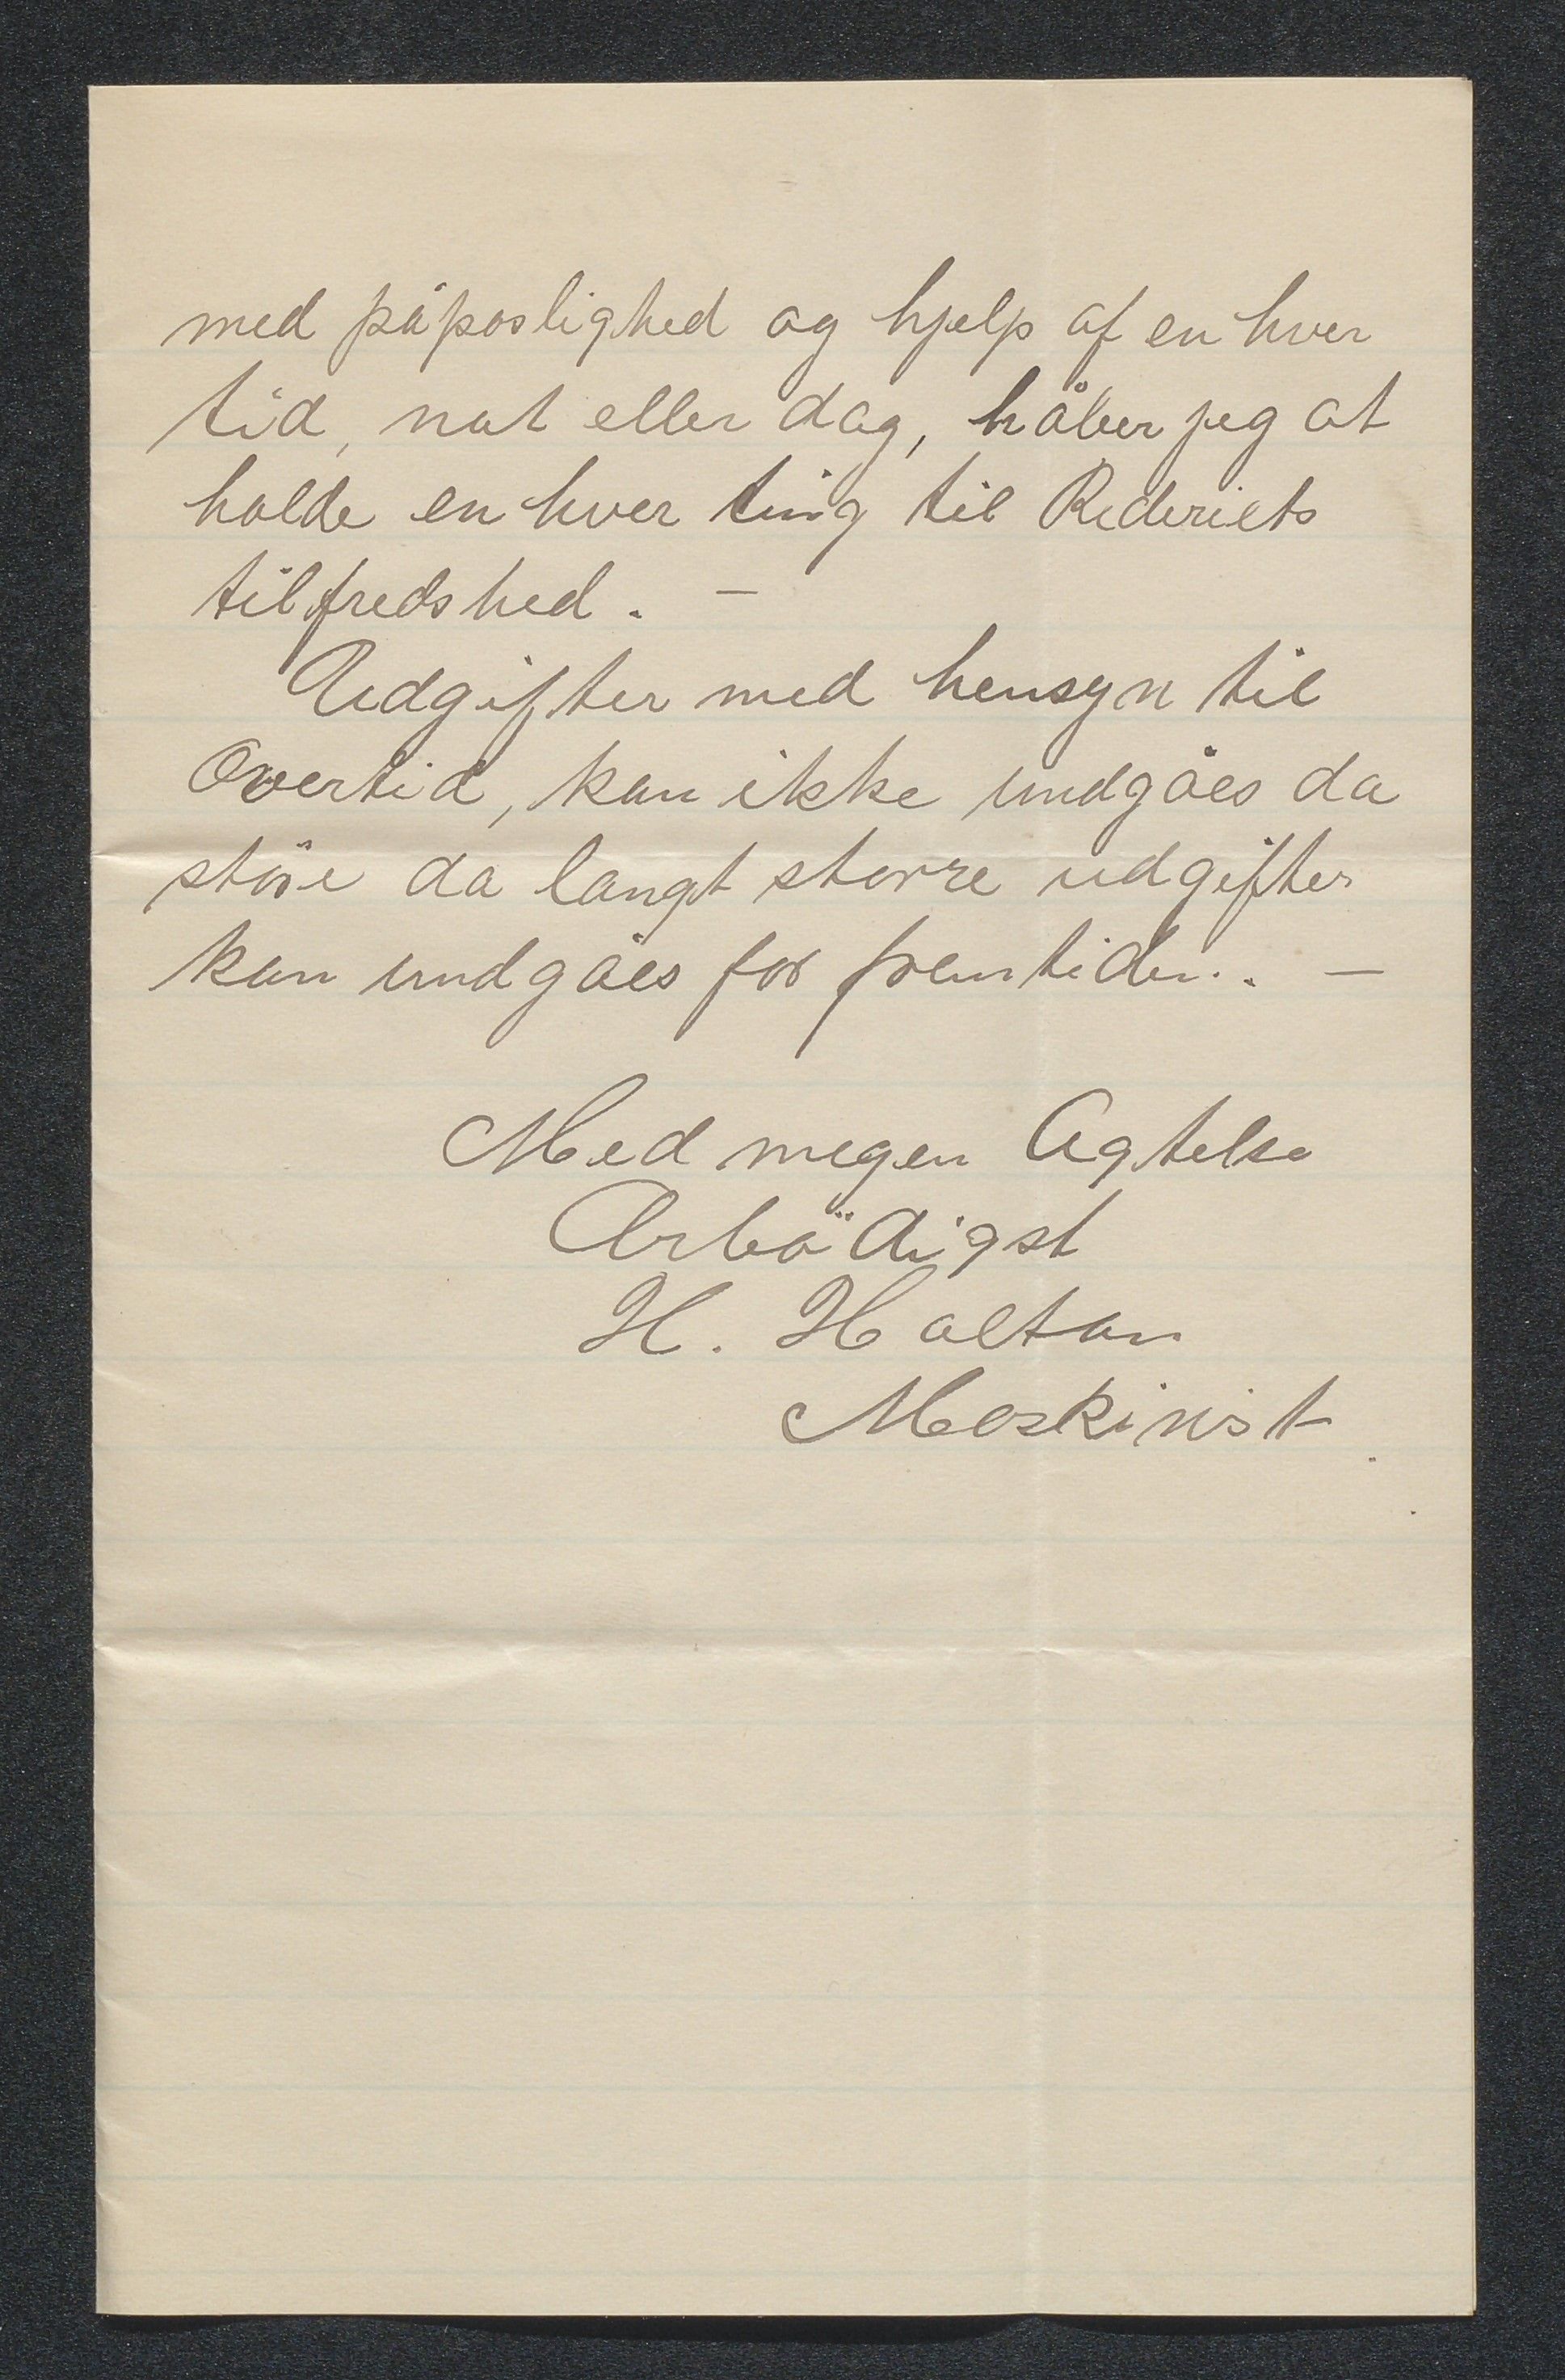 med påpaslighed og hjelp af en hver
tid, nat eller dag, håber jeg at
holde en hver ting til Rederiets
tilfredshed. —
Udgifter med hensyn til
Overtid, kan ikke undgåes da
da langt storre udgifter
kan undgåes for fremtiden. . —
Med megen Agtelse
Arbödigst
H. Haltan
Maskinist